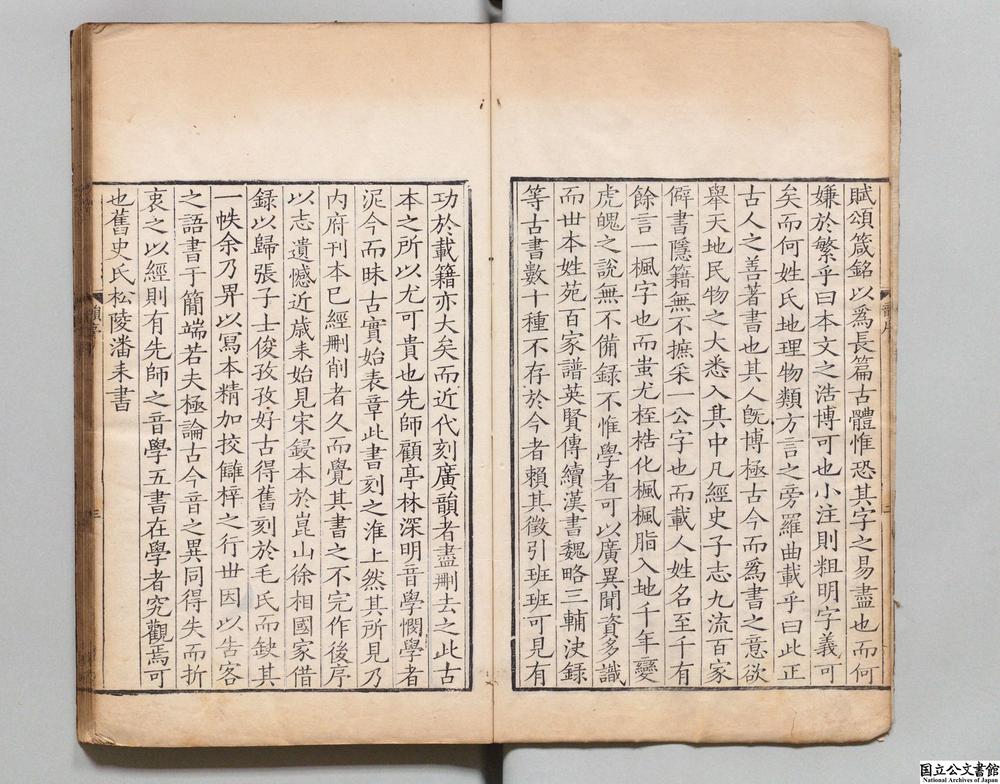 賦頌箴銘以爲長篇古體惟恐其字之易盡也而何
嫌於繁乎曰本文之浩博可也小注則粗明字義可
矣而何姓氏地理物類方言之旁羅曲載乎曰此正
古人之善著書也其人旣博極古今而爲書之意欲
舉天地民物之大悉入其中凡經史子志九流百家
僻書隱籍無不摭采一公字也而載人姓名至千有
餘言一楓字也而蚩尤桎梏化楓楓脂入地千年變
虎魄之說無不備録不惟學者可以廣異聞資多識
而世本姓苑百家譜英賢傳續漢書魏略三輔決録
等古書數十種不存於今者賴其徵引班班可見有
功於載籍亦大矣而近代刻廣韻者盡刪去之此古
本之所以尤可貴也先師顧亭林深明音學憫學者
泥今而昧古實始表章此書刻之淮上然其所見乃
内府刊本已經刪削者久而覺其書之不完作後序
以志遺憾近歲耒始見宋鋟本於崑山徐相國家借
録以歸張子士俊孜孜好古得舊刻於毛氏而缺其
一帙余乃畀以寫本精加挍讎梓之行世因以告客
之語書于簡端若夫極論古今音之異同得失而折
衷之以經則有先師之音學五書在學者究觀焉可
也舊史氏松陵潘耒書
三
国立公文書館
National Archives of Japan